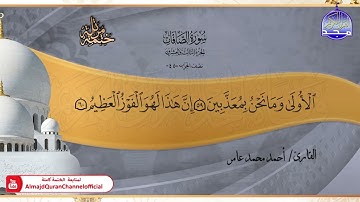 سُورَةُ الصَّافَّاتِ
ٱلْأُولَىٰ وَمَا نَحْنُ بِمُعَذَّبِينَ ٥٩ إِنَّ هَٰذَا لَهُوَ ٱلْفَوْزُ ٱلْعَظِيمُ ٦٠
القارئ / أحمد محمد عامر
لمتابعة الختمة كاملة
AlmajdQuranChannelofficial